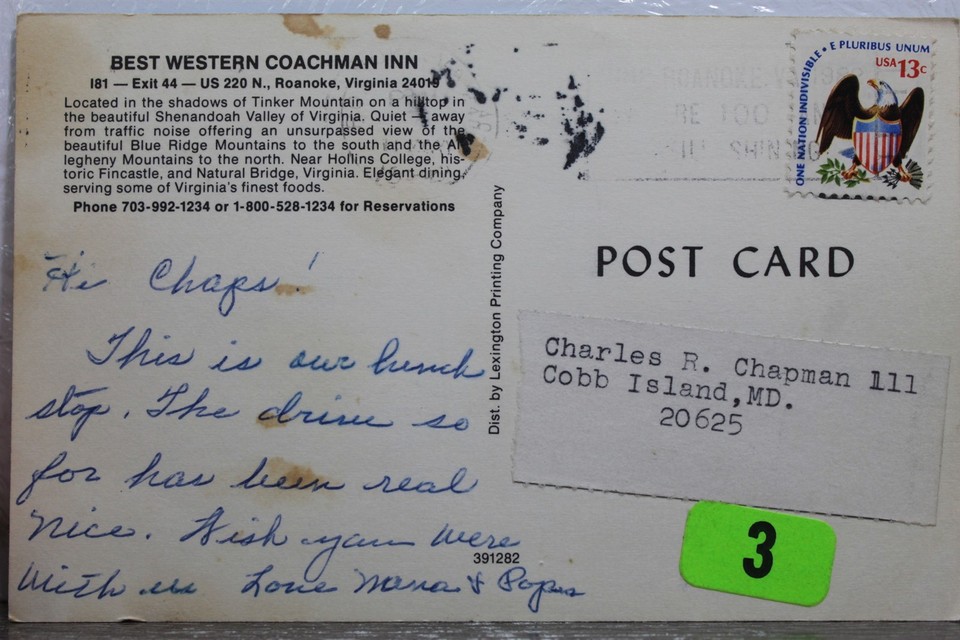 BEST WESTERN COACHMAN INN
I81 — Exit 44 — US 220 N., Roanoke, Virginia 24019
Located in the shadows of Tinker Mountain on a hilltop in
the beautiful Shenandoah Valley of Virginia. Quiet — away
from traffic noise offering an unsurpassed view of the
beautiful Blue Ridge Mountains to the south and the Al-
legheny Mountains to the north. Near Hollins College, his-
toric Fincastle, and Natural Bridge, Virginia. Elegant dining,
serving some of Virginia's finest foods.
Phone 703-992-1234 or 1-800-528-1234 for Reservations
Hi Chaps!
This is our lunch
stop. The drive so
for has been real
nice. Wish you were
with us Love Mama & Pops
391282
Dist. by Lexington Printing Company
ROANOKE VA
ONE NATION INDIVISIBLE • E PLURIBUS UNUM
USA 13c
POST CARD
Charles R. Chapman 111
Cobb Island,MD.
20625
3